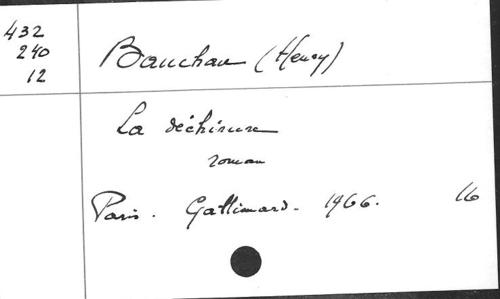 432
240
12
Bauchau (Henry)
La déchirure
roman
Paris. Gallimard. 1966. 16